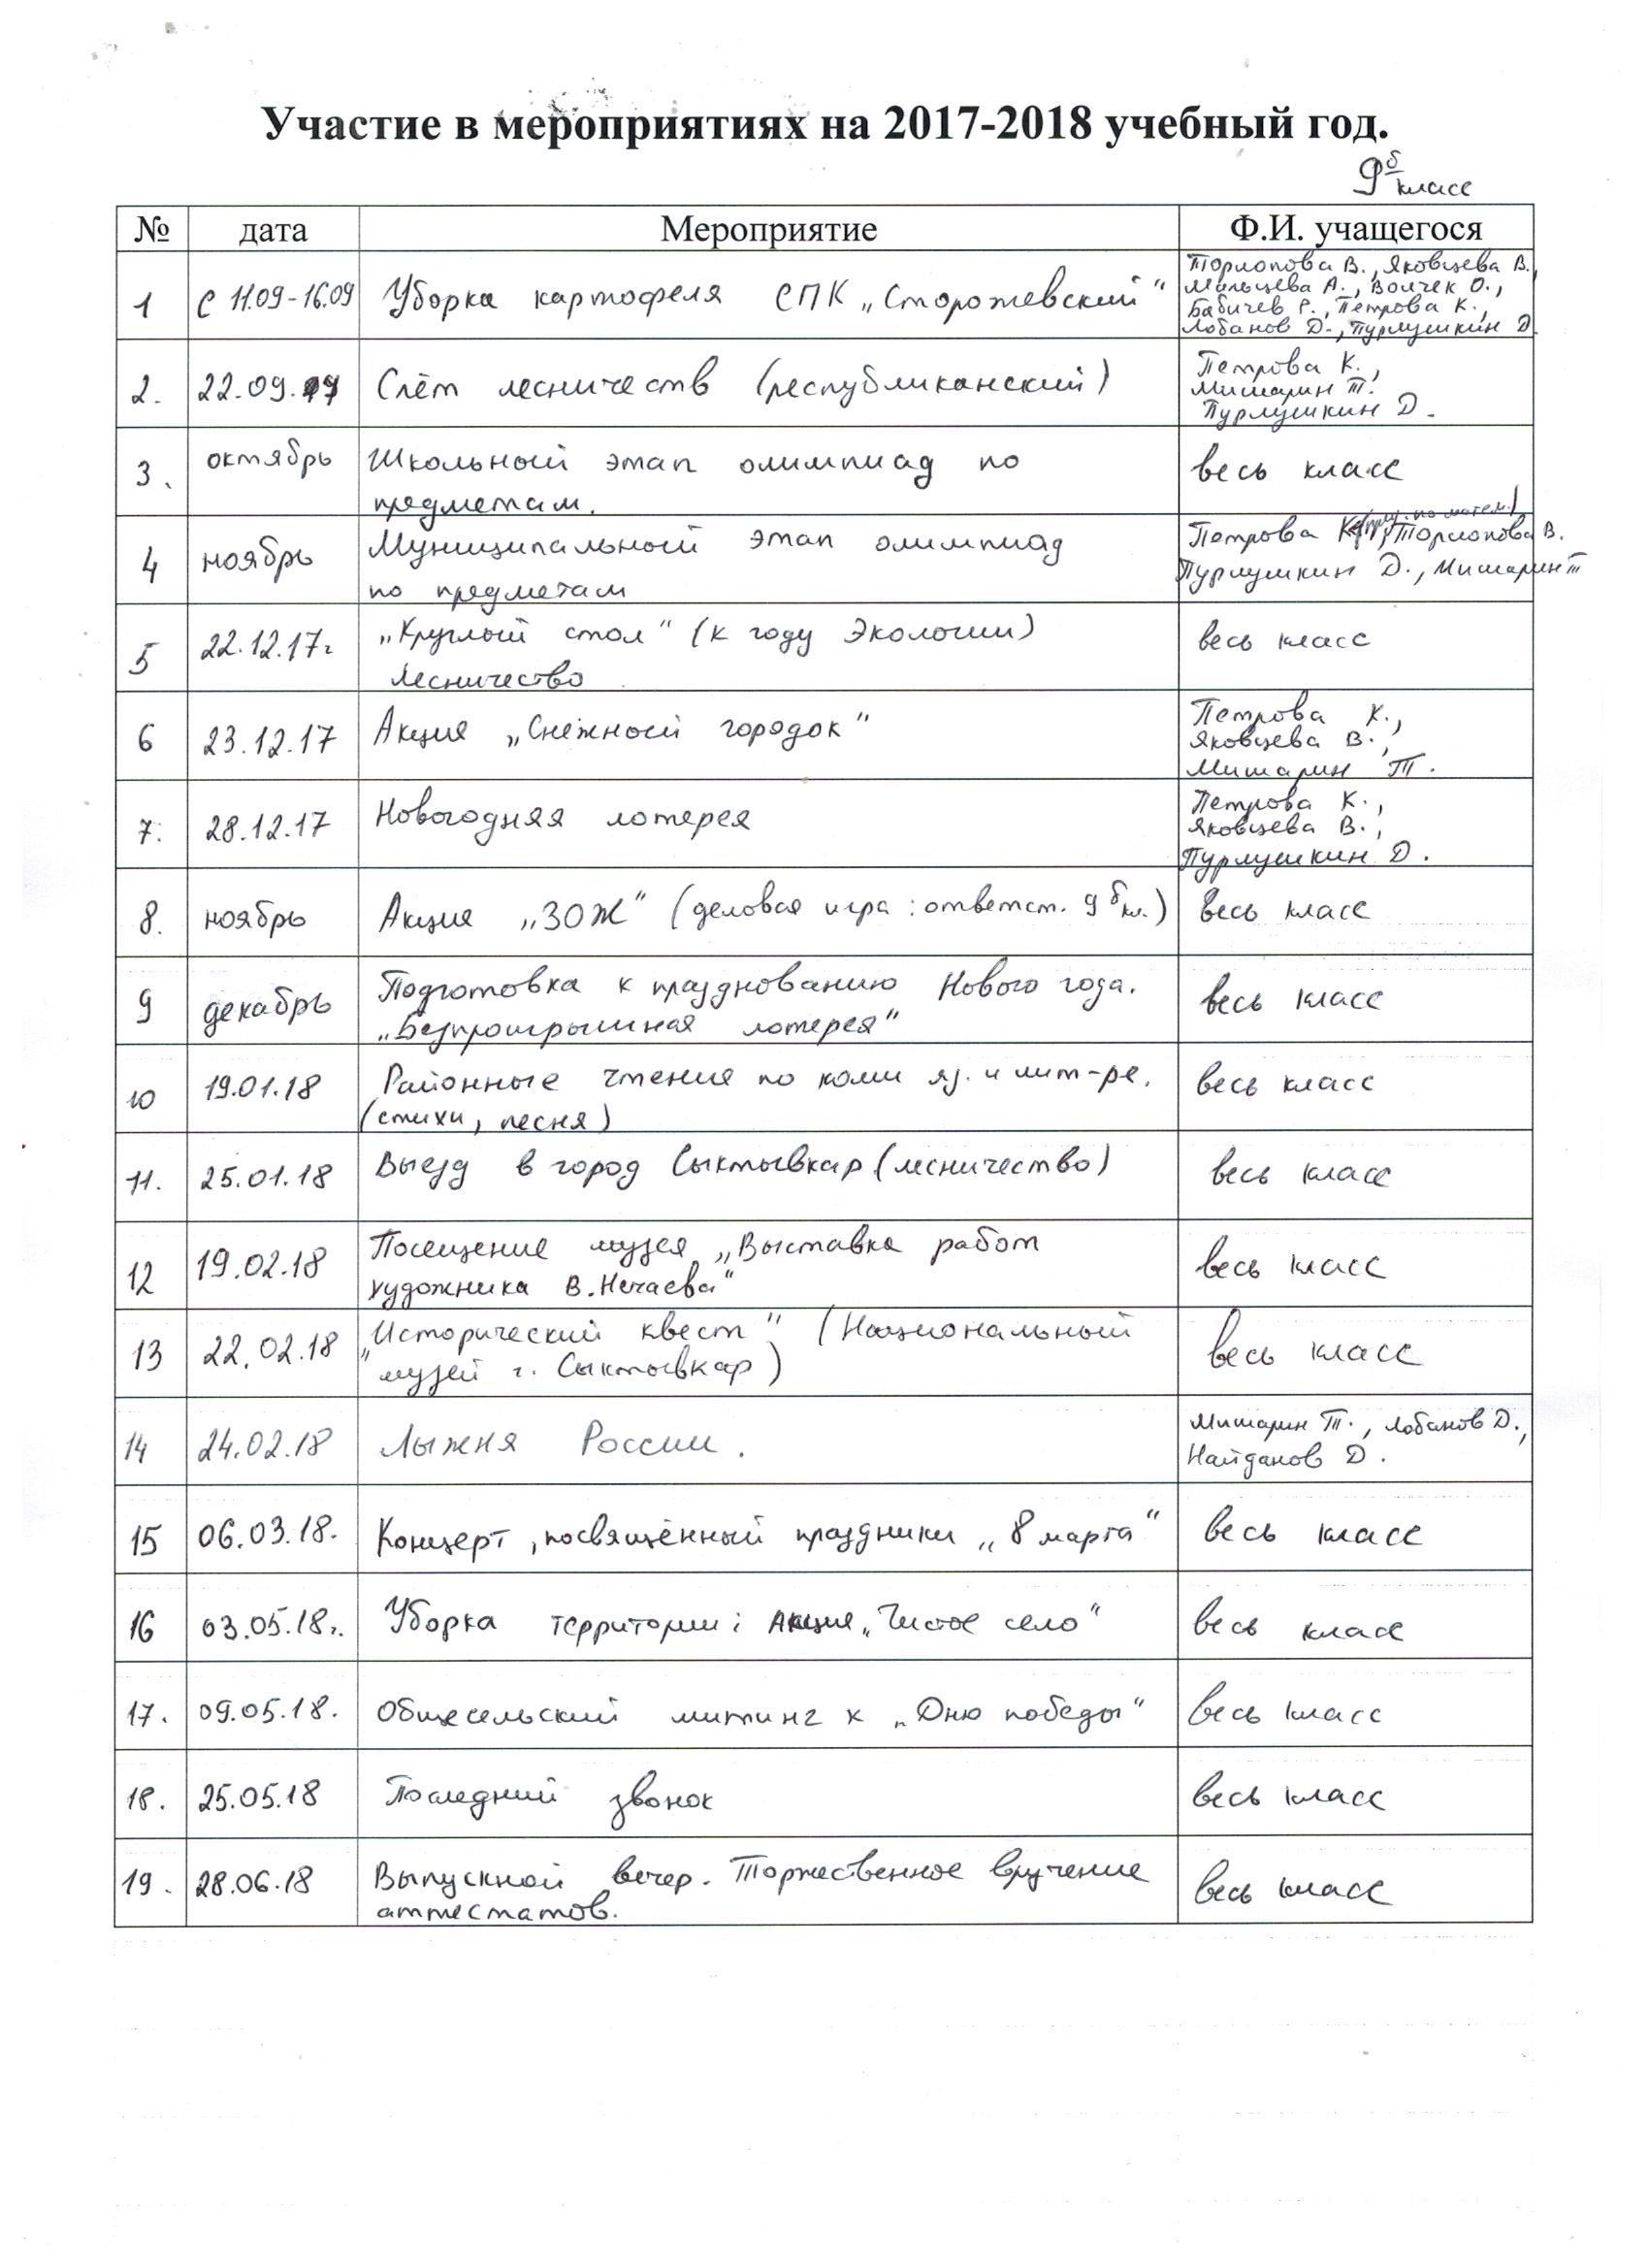 Участие в мероприятиях на 2017-2018 учебный год.
9б класс
№ дата Мероприятие Ф.И. учащегося
1 с 11.09-16.09 Уборка картофеля СПК „Сторожевский" Торлопова В., Яковцева В.,
Мальцева А., Волчек О.,
Бабичев Р., Петрова К.,
Лобанов Д., Пурлушкин Д.
2. 22.09.17 Слёт лесничеств (республиканский) Петрова К.,
Мишарин Т.
Пурлушкин Д.
3. октябрь Школьный этап олимпиад по весь класс
предметам.
4 ноябрь Муниципальный этап олимпиад Петрова К. по матем.), Торлопова В.
по предметам Пурлушкин Д., Мишарин Т
5 22.12.17г „Круглый стол" (к году Экологии) весь класс
Лесничество
6 23.12.17 Акция „Снежный городок" Петрова К.,
Яковцева В.,
Мишарин Т.
7. 28.12.17 Новогодняя лотерея Петрова К.,
Яковцева В.,
Пурлушкин Д.
8. ноябрь Акция „ЗОЖ" (деловая игра: ответст. 9б кл.) весь класс
9 декабрь Подготовка к празднованию Нового года. весь класс
„Безпроигрышная лотерея"
10 19.01.18 Районные чтения по коми яз. и лит-ре. весь класс
(стихи, песня)
11. 25.01.18 Выезд в город Сыктывкар (лесничество) весь класс
12 19.02.18 Посещение музея „Выставка работ весь класс
художника В.Нечаева"
13 22.02.18 „Исторический квест" (Национальный весь класс
музей г. Сыктывкар)
14 24.02.18 Лыжня России. Мишарин Т., Лобанов Д.,
Найданов Д.
15 06.03.18. Концерт, посвящённый праздники „8 марта" весь класс
16 03.05.18г. Уборка территории: Акция „Чистое село" весь класс
17. 09.05.18. Общесельский митинг к „Дню победы" весь класс
18. 25.05.18 Последний звонок весь класс
19. 28.06.18 Выпускной вечер. Торжественное вручение весь класс
аттестатов.